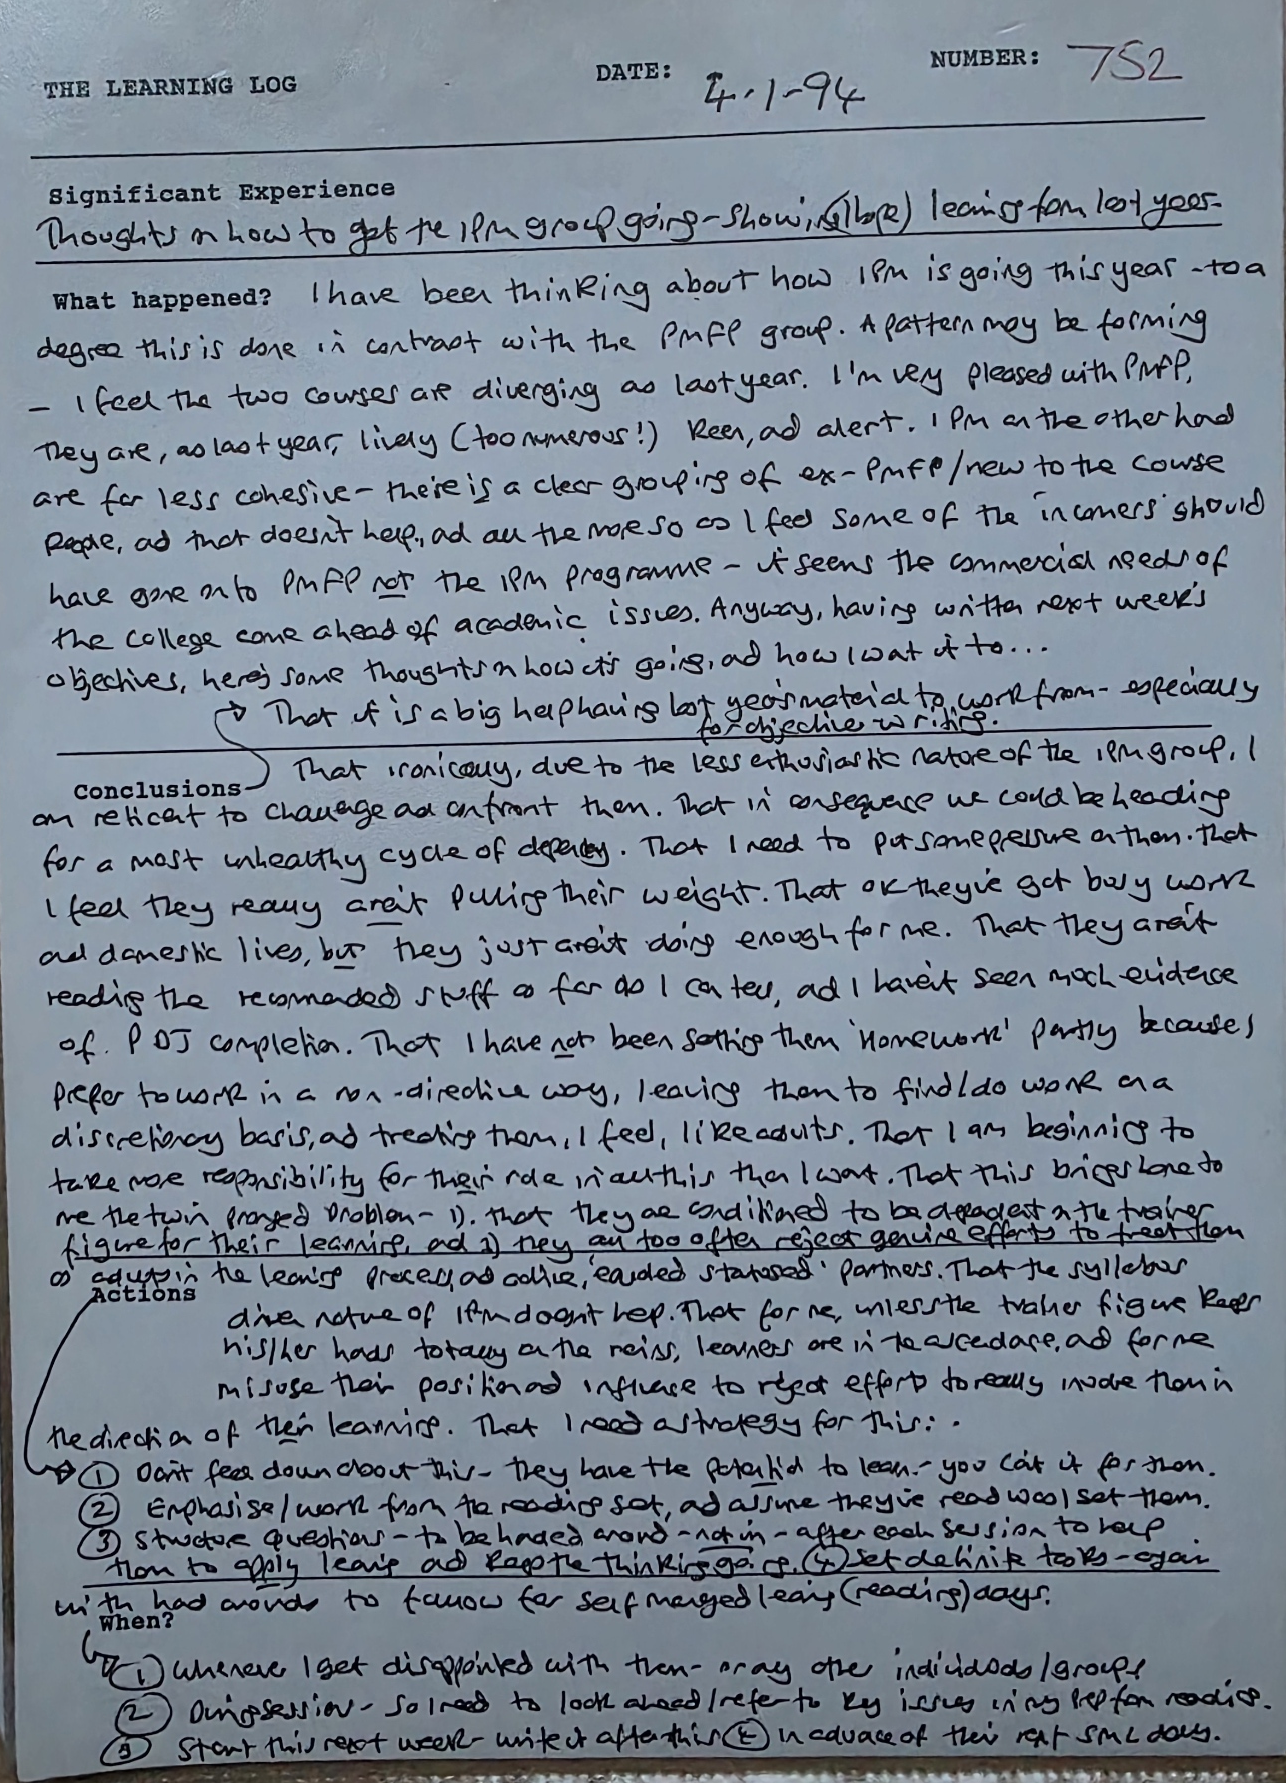 THE LEARNING LOG DATE: 4.1-94 NUMBER: 752
Significant Experience
Thoughts on how to get the IPM group going - showing (I hope) learning from last year.
What happened? I have been thinking about how IPM is going this year - to a
degree this is done in contrast with the PMFP group. A pattern may be forming
- I feel the two courses are diverging as last year. I'm very pleased with PMFP,
they are, as last year, lively (too numerous!) keen, and alert. IPM on the other hand
are far less cohesive - there is a clear grouping of ex-PMFP/new to the course
people, and that doesn't help, and all the more so as I feel some of the 'incomers' should
have gone onto PMFP not the IPM programme - it seems the commercial needs of
the college come ahead of academic issues. Anyway, having written next week's
objectives, here's some thoughts on how it's going, and how I want it to...
That it is a big help having last year's material to work from - especially
for objective writing.
Conclusions That ironically, due to the less enthusiastic nature of the IPM group, I
am reticent to challenge and confront them. That in consequence we could be heading
for a most unhealthy cycle of dependency. That I need to put some pressure on them. That
I feel they really aren't pulling their weight. That ok they've got busy work
and domestic lives, but they just aren't doing enough for me. That they aren't
reading the recommended stuff as far as I can tell, and I haven't seen much evidence
of PDJ completion. That I have not been setting them 'Homework' partly because I
prefer to work in a non-directive way, leaving them to find/do work on a
discretionary basis, and treating them, I feel, like adults. That I am beginning to
take more responsibility for their role in all this than I want. That this brings home to
me the twin pronged problem - 1). that they are conditioned to be dependent on the trainer
figure for their learning, and 2) they all too often reject genuine efforts to treat them
as adults in the learning process, and active, statused' partners. That the syllabus
driven nature of IPM doesn't help. That for me, unless the trainer figure keeps
his/her hands totally on the reins, learners are in the ascendance, and for me
misuse their position and influence to reject efforts to really involve them in
the direction of their learning. That I need a strategy for this: -
Actions
① Don't feel down about this - they have the potential to learn - you can't do it for them.
② Emphasise/work from the reading set, and assume they've read what I set them.
③ Structure questions - to be handed around - not in - after each session to help
them to apply learning and keep the thinking going. ④ Set definite tasks - again
with hand arounds to follow for self managed learning (reading) days.
When?
① Whenever I get disappointed with them - or any other individuals/groups
② During session - so I need to look ahead/refer to key issues in my prep from reading.
③ Start this next week - write it after this ④ In advance of their next SML days.